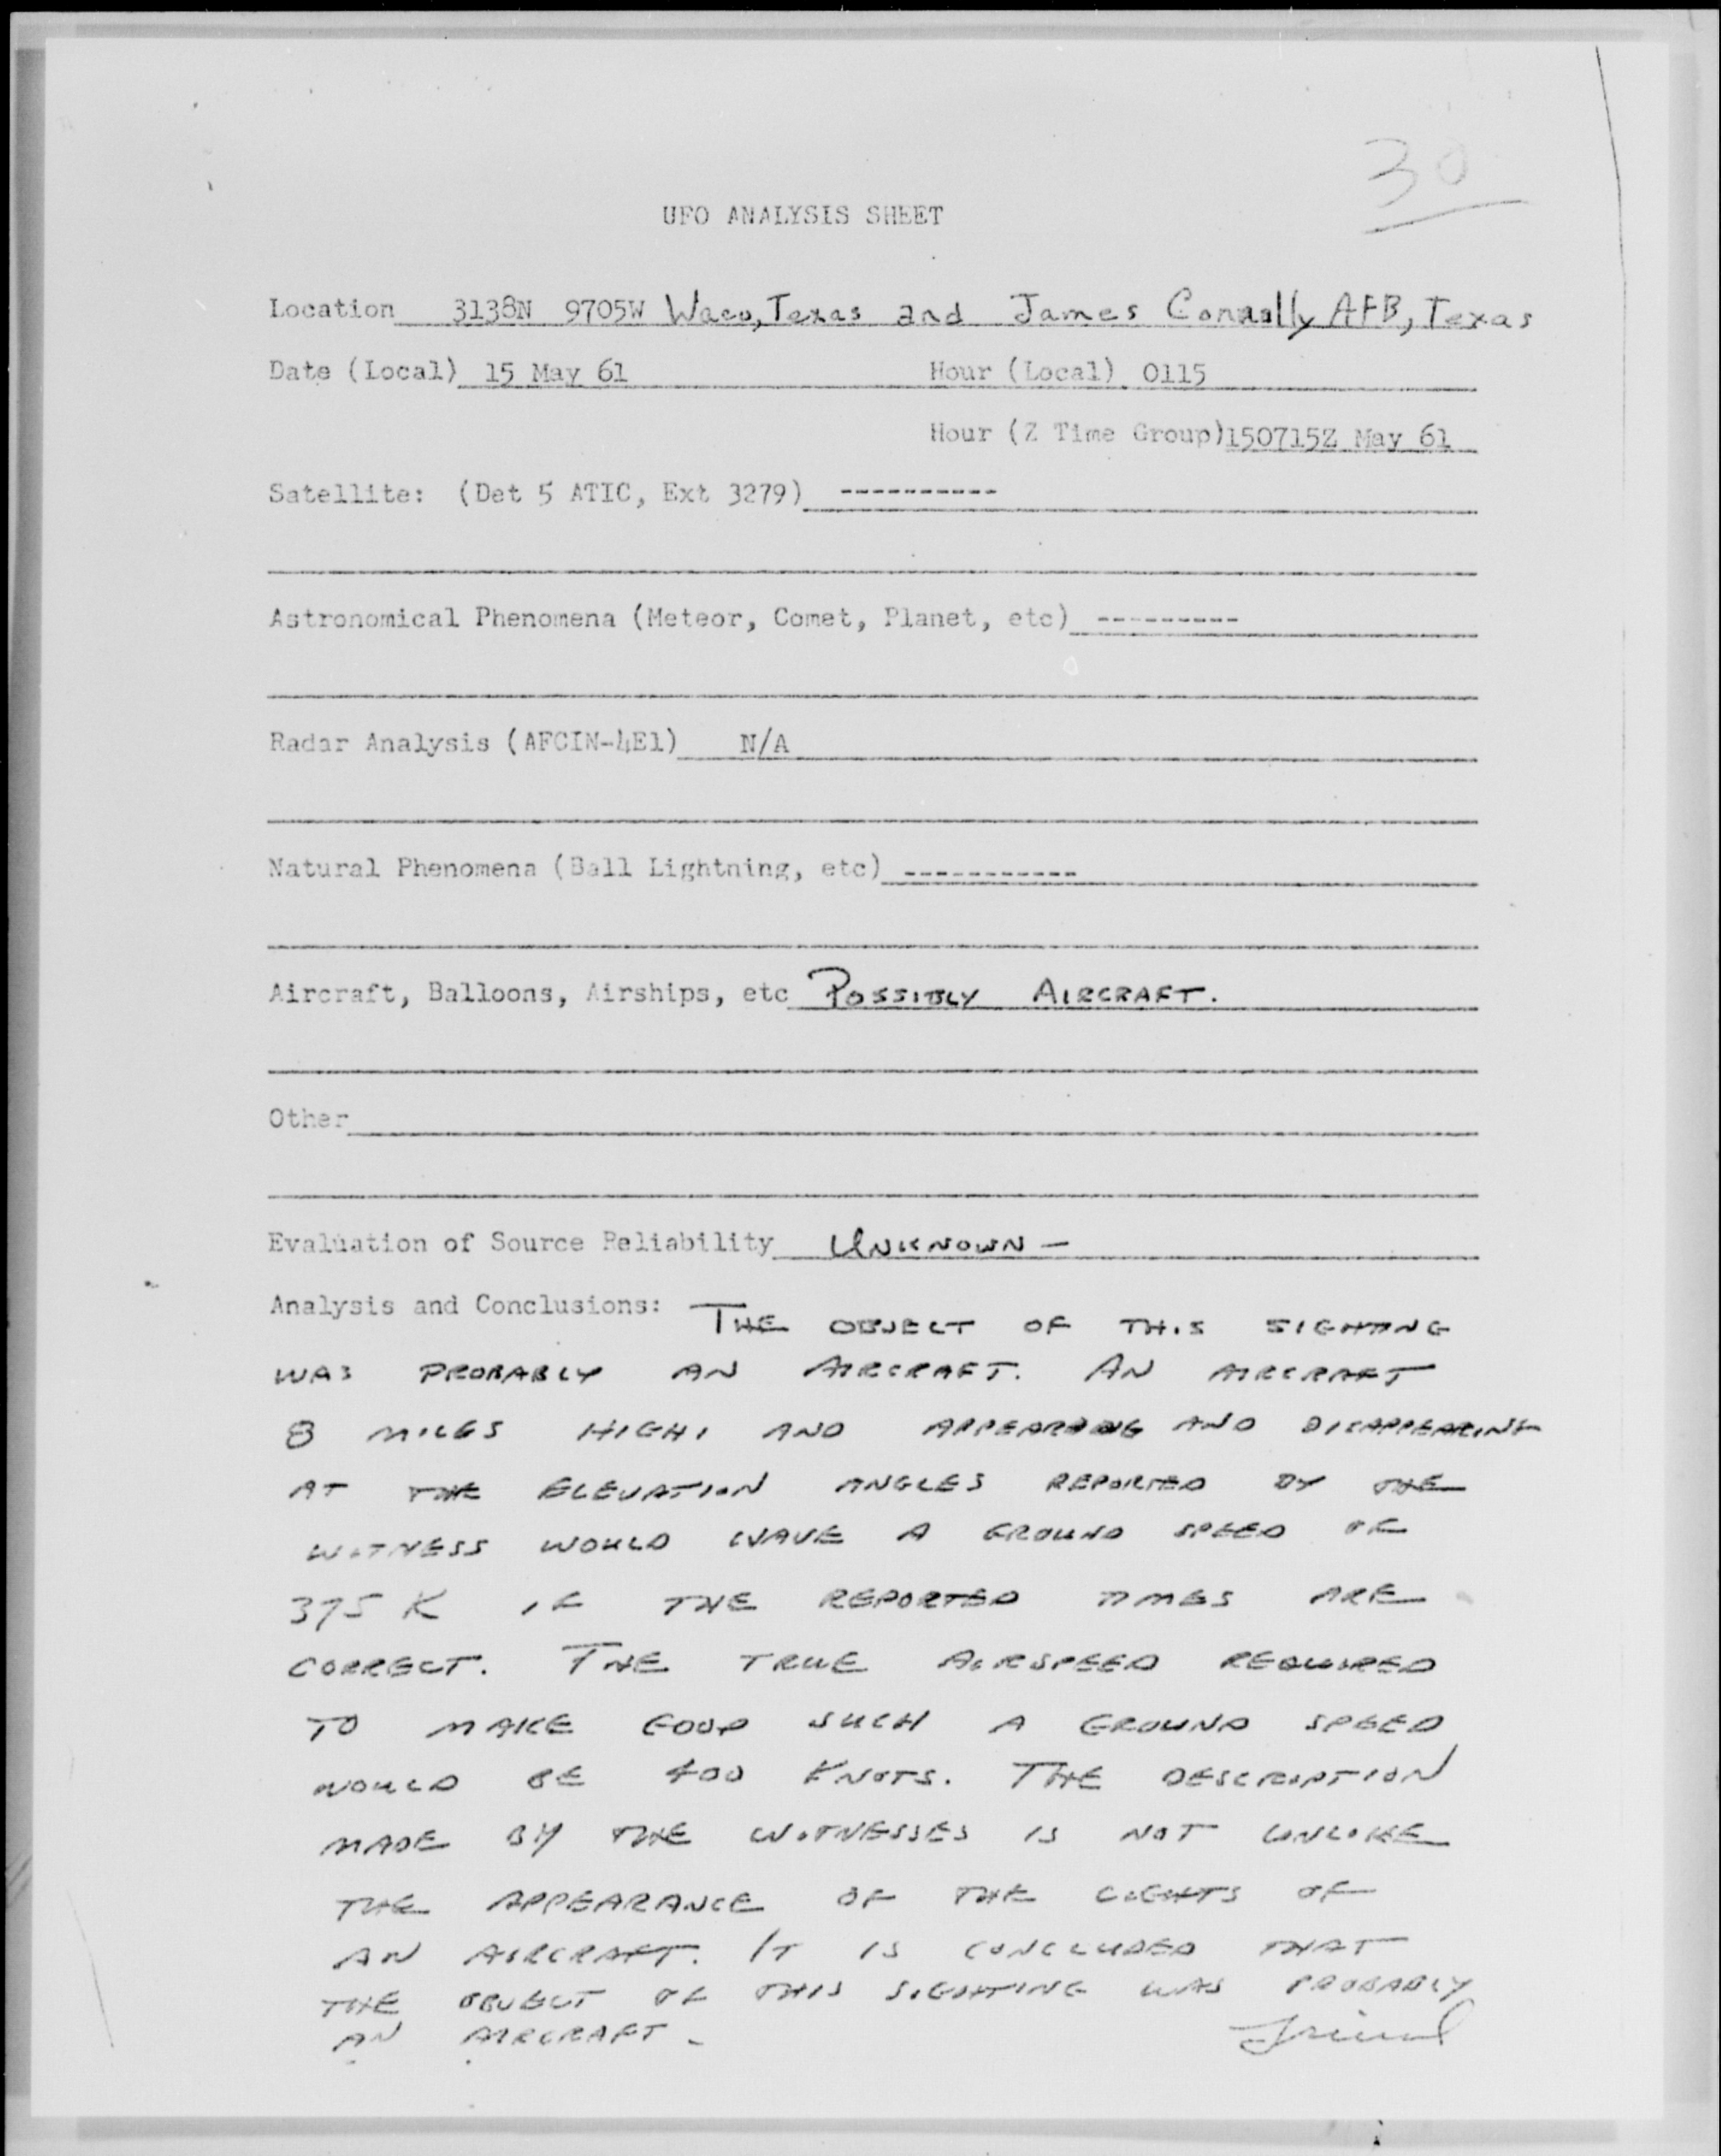 30
UFO ANALYSIS SHEET
Location 3138N 9705W Waco, Texas and James Connally AFB, Texas
Date (Local) 15 May 61 Hour (Local) 0115
Hour (Z Time Group) 150715Z May 61
Satellite: (Det 5 ATIC, Ext 3279) ----------
Astronomical Phenomena (Meteor, Comet, Planet, etc) ---------
Radar Analysis (AFCIN-4E1) N/A
Natural Phenomena (Ball Lightning, etc) -----------
Aircraft, Balloons, Airships, etc POSSIBLY AIRCRAFT.
Other
Evaluation of Source Reliability UNKNOWN –
Analysis and Conclusions: THE OBJECT OF THIS SIGHTING
WAS PROBABLY AN AIRCRAFT. AN AIRCRAFT
8 MILES HIGH, AND APPEARING AND DISAPPEARING
AT THE ELEVATION ANGLES REPORTED BY THE
WITNESS WOULD HAVE A GROUND SPEED OF
375 K IF THE REPORTED TIMES ARE
CORRECT. THE TRUE AIRSPEED REQUIRED
TO MAKE GOOD SUCH A GROUND SPEED
WOULD BE 400 KNOTS. THE DESCRIPTION
MADE BY THE WITNESSES IS NOT UNLIKE
THE APPEARANCE OF THE LIGHTS OF
AN AIRCRAFT. IT IS CONCLUDED THAT
THE OBJECT OF THIS SIGHTING WAS PROBABLY
AN AIRCRAFT –